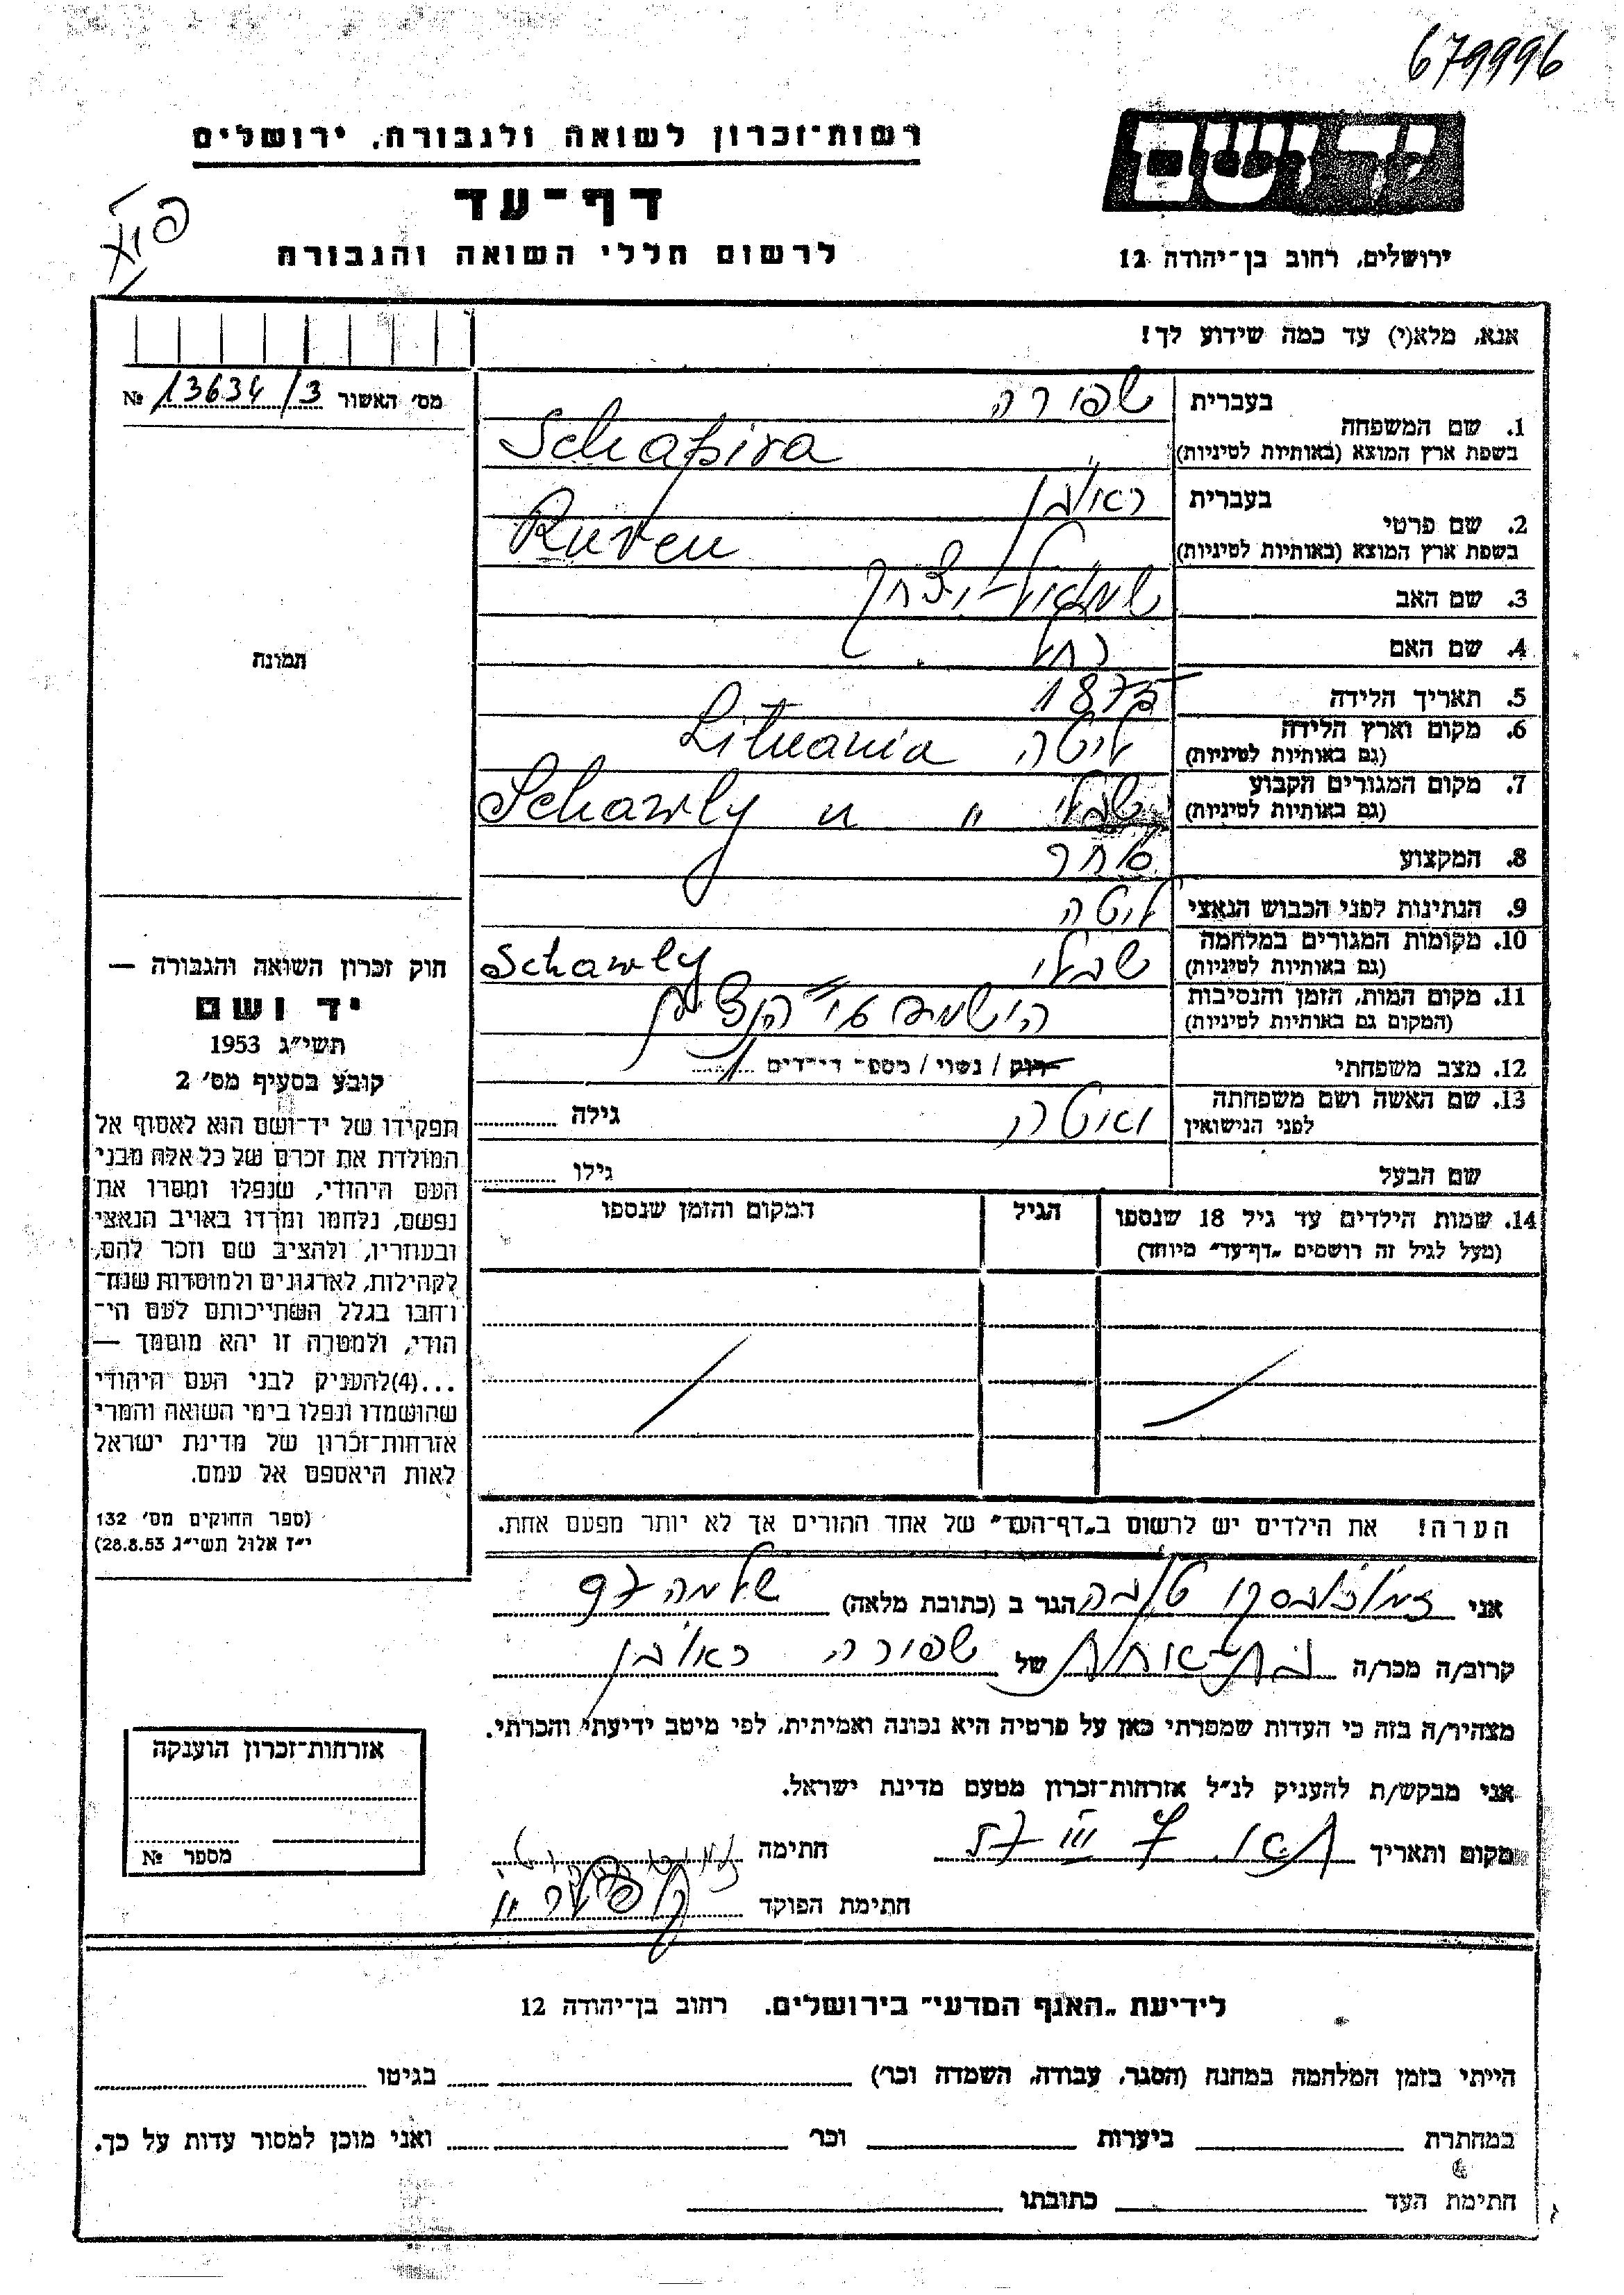 679996
יד ושם
רשות־זכרון לשואה ולגבורה, ירושלים
דף־עד
לרשום חללי השואה והגבורה
ירושלים, רחוב בן־יהודה 12
אנא, מלא(י) עד כמה שידוע לך!
מס׳ האשור 13634/3 №
1. שם המשפחה בעברית שפורה
בשפת ארץ המוצא (באותיות לטיניות) Schapira
2. שם פרטי בעברית ראובן
בשפת ארץ המוצא (באותיות לטיניות) Ruven
3. שם האב שמואל־יצחק
4. שם האם רחל
5. תאריך הלידה 1875
6. מקום וארץ הלידה (גם באותיות לטיניות) ליטה Lituania
7. מקום המגורים הקבוע (גם באותיות לטיניות) שבלי " Schawly "
8. המקצוע סוחר
9. הנתינות לפני הכבוש הנאצי ליטה
10. מקומות המגורים במלחמה (גם באותיות לטיניות) שבלי Schawly
11. מקום המות, הזמן והנסיבות (המקום גם באותיות לטיניות) הושמד ע"י הנצים
12. מצב משפחתי רווק / נשוי / מספר ילדים
13. שם האשה ושם משפחתה לפני הנישואין גילה
שם הבעל גילו
14. שמות הילדים עד גיל 18 שנספו
(מעל לגיל זה רושמים „דף־עד" מיוחד)
הגיל
המקום והזמן שנספו
תמונה
חוק זכרון השואה והגבורה —
יד ושם
תשי״ג 1953
קובע בסעיף מס׳ 2
תפקידו של יד־ושם הוא לאסוף אל
המולדת את זכרם של כל אלה מבני
העם היהודי, שנפלו ומסרו את
נפשם, נלחמו ומרדו באויב הנאצי
ובעוזריו, ולהציב שם וזכר להם,
לקהילות, לארגונים ולמוסדות שנח־
רחבו בגלל השתייכותם לעם הי־
הודי, ולמטרה זו יהא מוסמך —
...(4)להעניק לבני העם היהודי
שהושמדו ונפלו בימי השואה והמרי
אזרחות־זכרון של מדינת ישראל
לאות היאספם אל עמם.
(ספר החוקים מס׳ 132
י״ז אלול תשי״ג 28.8.53)
הערה! את הילדים יש לרשום ב„דף־העד" של אחד ההורים אך לא יותר מפעם אחת.
אני טובה הגר ב (כתובת מלאה) שלמה 97
קרוב/ה מכר/ה בת־אחות של שפורה ראובן
מצהיר/ה בזה כי העדות שמסרתי כאן על פרטיה היא נכונה ואמיתית, לפי מיטב ידיעתי והכרתי.
אני מבקש/ת להעניק לנ״ל אזרחות־זכרון מטעם מדינת ישראל.
מקום ותאריך חתימה
חתימת הפוקד
אזרחות־זכרון הוענקה
מספר №
לידיעת „האגף המדעי" בירושלים. רחוב בן־יהודה 12
הייתי בזמן המלחמה במחנה (הסגר, עבודה, השמדה וכו׳) בגיטו
במחתרת ביערות וכו׳ ואני מוכן למסור עדות על כך.
חתימת העד כתובתו